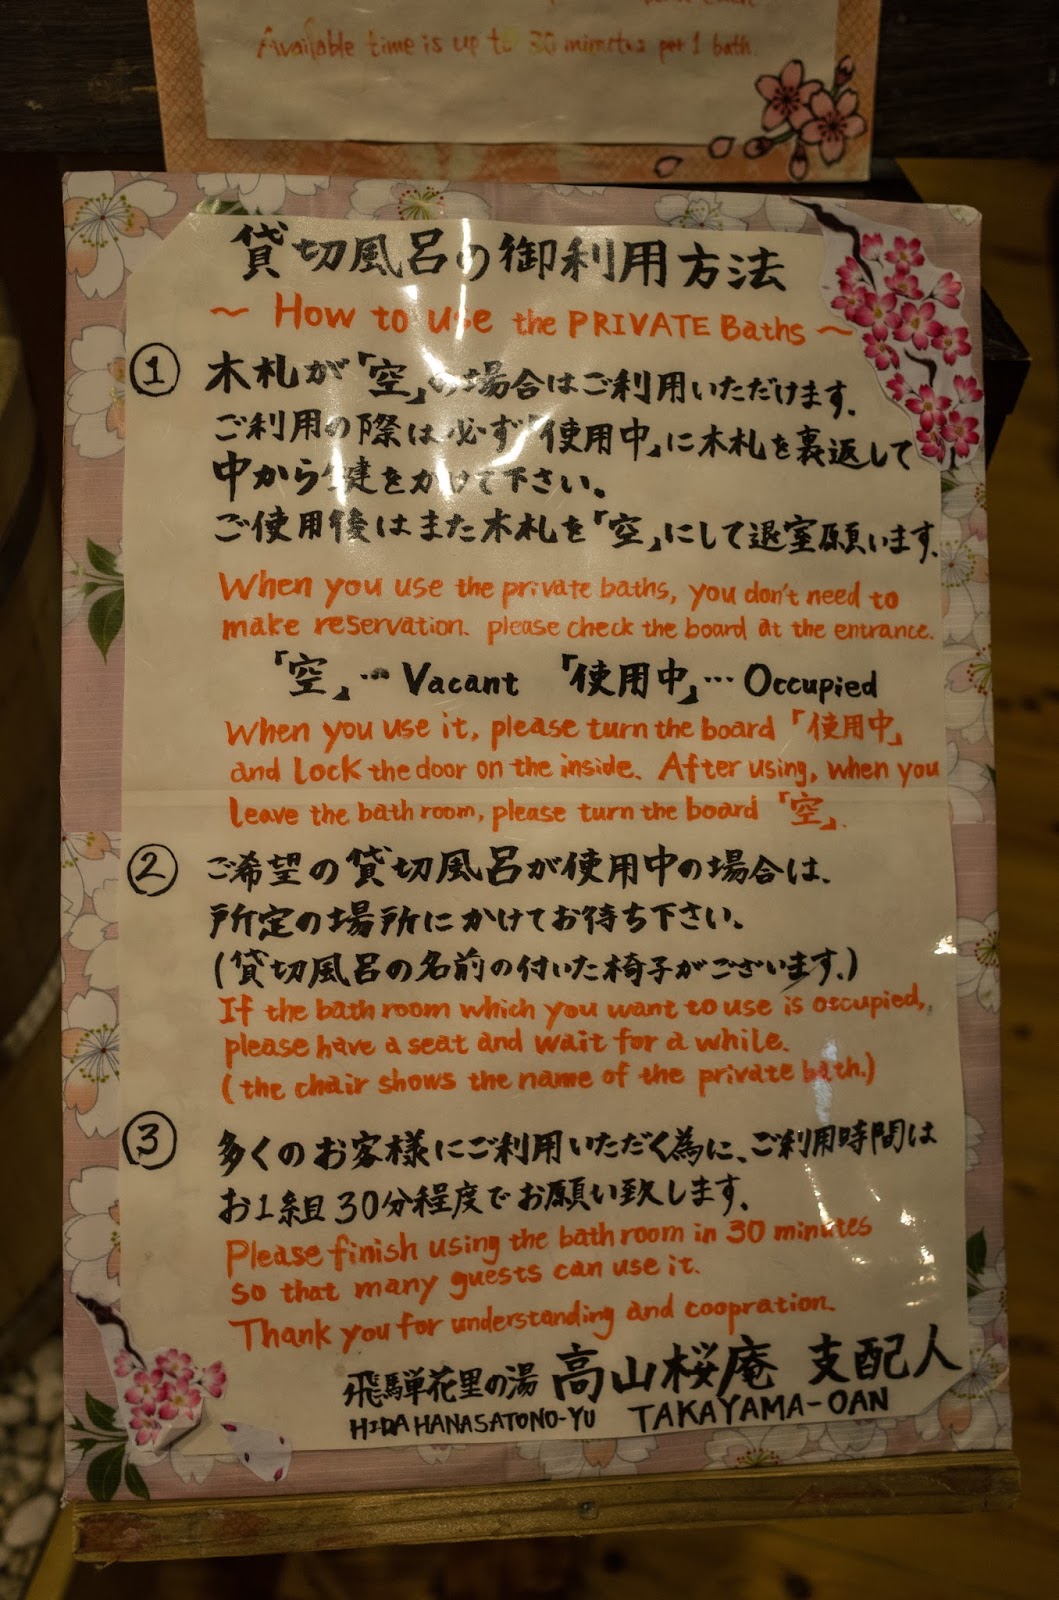 Available time is up to 30 minutes per 1 bath.
貸切風呂の御利用方法
～ How to use the PRIVATE Baths ～
① 木札が「空」の場合はご利用いただけます.
ご利用の際は必ず「使用中」に木札を裏返して
中から鍵をかけて下さい。
ご使用後はまた木札を「空」にして退室願います.
When you use the private baths, you don't need to
make reservation. please check the board at the entrance.
「空」… Vacant 「使用中」… Occupied
When you use it, please turn the board 「使用中」
and lock the door on the inside. After using, when you
leave the bath room, please turn the board 「空」.
② ご希望の貸切風呂が使用中の場合は、
所定の場所にかけてお待ち下さい.
(貸切風呂の名前の付いた椅子がございます.)
If the bath room which you want to use is occupied,
please have a seat and wait for a while.
(the chair shows the name of the private bath.)
③ 多くのお客様にご利用いただく為に、ご利用時間は
お1組30分程度でお願い致します.
Please finish using the bath room in 30 minutes
so that many guests can use it.
Thank you for understanding and coopration.
飛騨花里の湯 高山桜庵 支配人
HIDA HANASATONO-YU TAKAYAMA-OAN